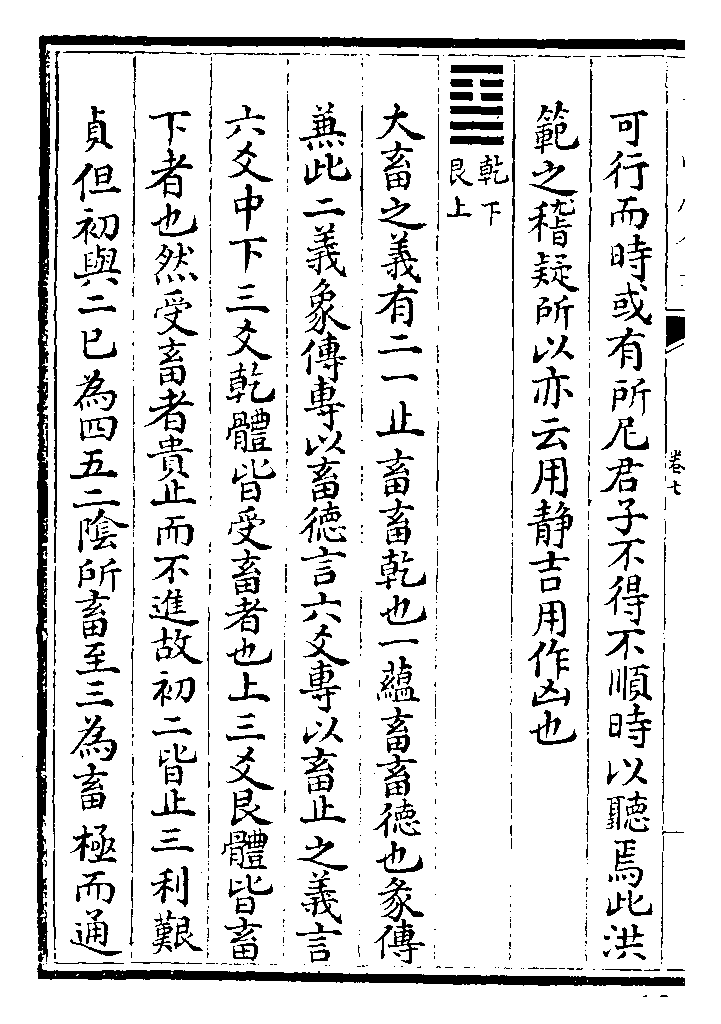 可行而時或有所尼君子不得不順時以聽焉此洪
範之稽疑所以亦云用靜吉用作凶也
䷙乾下艮上
大畜之義有二一止畜畜乾也一蘊畜畜德也彖傳
兼此二義象傳專以畜德言六爻專以畜止之義言
六爻中下三爻乾體皆受畜者也上三爻艮體皆畜
下者也然受畜者貴止而不進故初二皆止三利艱
貞但初與二已為四五二陰所畜至三為畜極而通
卷七